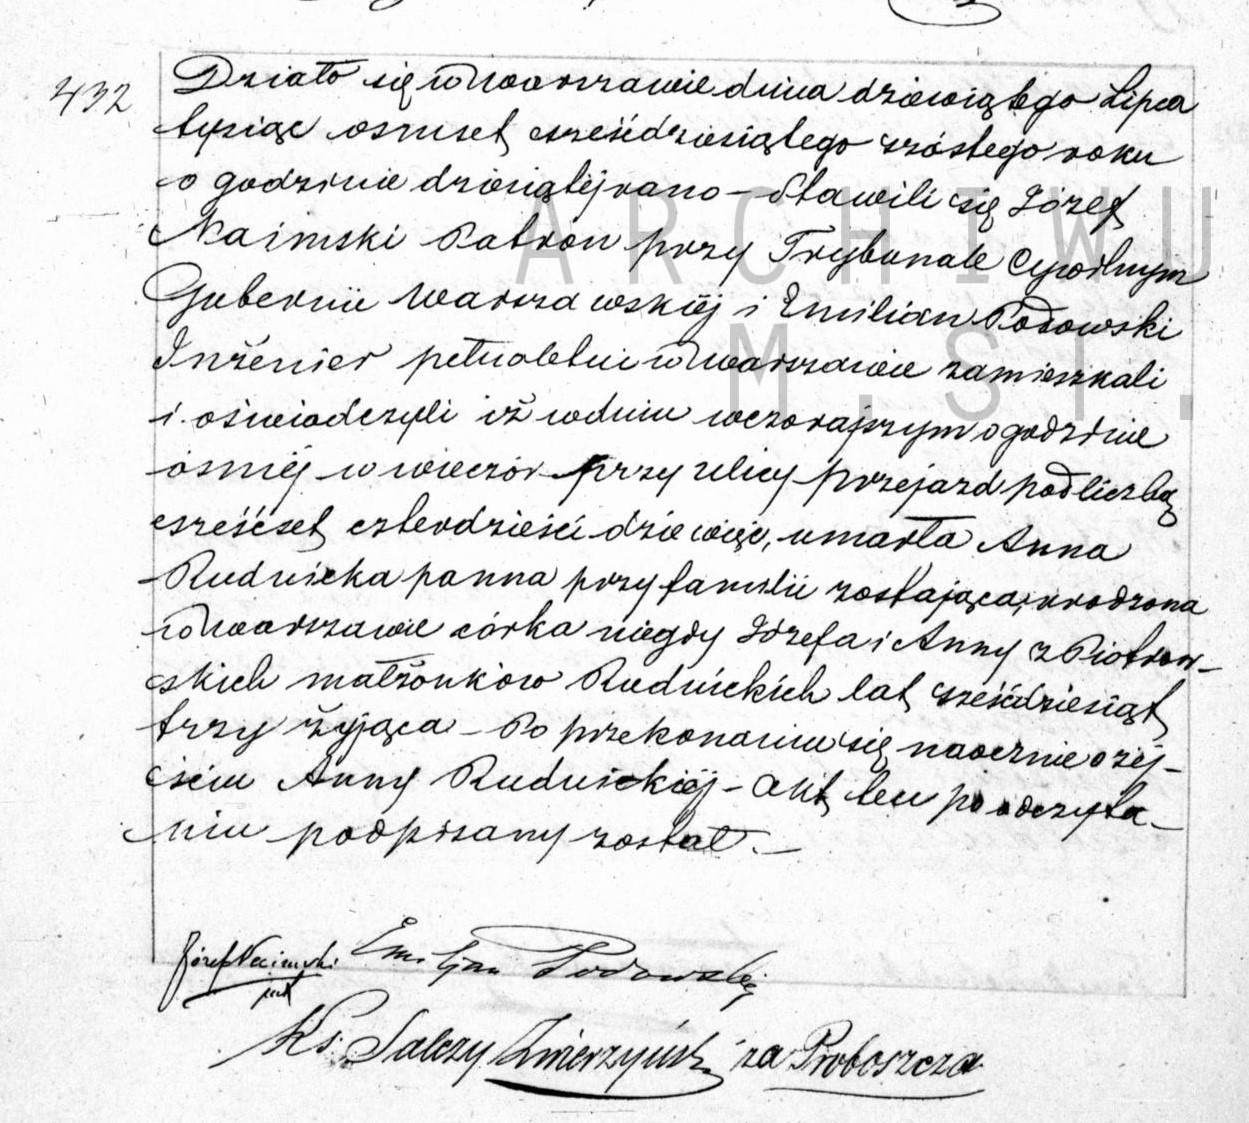 432
Działo się w Warszawie dnia dziewiątego Lipca
tysiąc osmset sześćdziesiątego szóstego roku
o godzinie dziesiątéj rano – Stawili się Józef
Naimski Patron przy Trybunale Cywilnym
Gubernii Warszawskiéj i Emilian Podowski
Inżenier pełnoletni w Warszawie zamieszkali
i oświadczyli iż w dniu wczorajszym o godzinie
ósméj w wieczór przy ulicy Przejazd pod liczbą
sześćset czterdzieści dziewięć, umarła Anna
Rudnicka panna przy familii zostająca, urodzona
w Warszawie córka niegdy Józefa i Anny z Piotrow-
skich małżonków Rudnickich lat sześćdziesiąt
trzy żyjąca – Po przekonaniu się naocznie o zéj-
ściu Anny Rudnickiéj – Akt ten po odczyta-
niu podpisany został. –
Józef Naimski Emiljan Podowski
Ks. Salezy Zmierzyński za Proboszcza
ARCHIWU
M . ST .